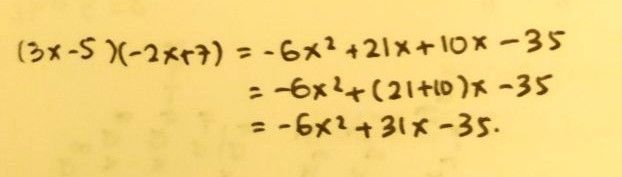 (3x-5)(-2x+7) = -6x² +21x+10x -35
= -6x²+(21+10)x -35
= -6x²+31x-35.